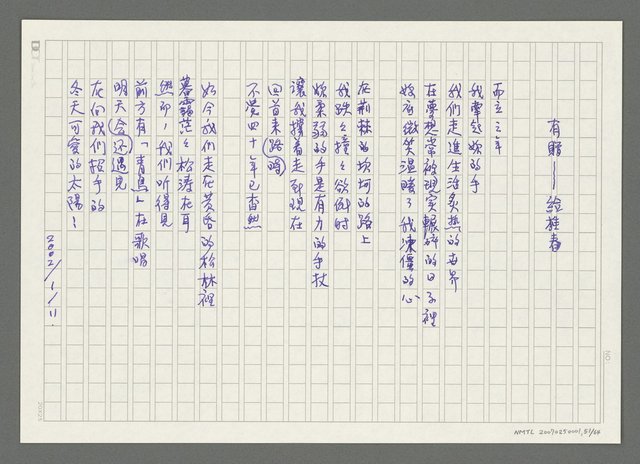 有贈——給桂春
而立之年
我牽起妳的手
我們走進生活炙熱的世界
在夢想常被現實輾碎的日子裡
妳底微笑溫暖了我凍僵的心
在荊棘的坎坷的路上
我跌々撞々欲倒時
妳柔弱的手是有力的手杖
讓我撐着走到現在
回首來路時
不覺四十年已杳然
如今我們走在黃昏的松林裡
暮靄茫々松濤在耳
然而，我們听得見
前方有「青鳥」在歌唱
明天會还遇見
在向我們招手的
冬天可愛的太陽！
2002/1/11.
NO.
20X25
NMTL 20070250001,51/64